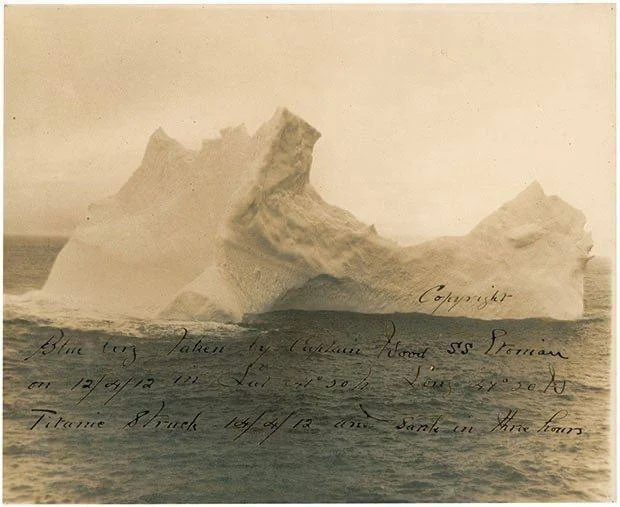 Copyright
Blue berg Taken by Captain Wood SS Etonian
on 12/4/12 in Lat 50 N Long 50 W
Titanic Struck 14/4/12 and sank in three hours